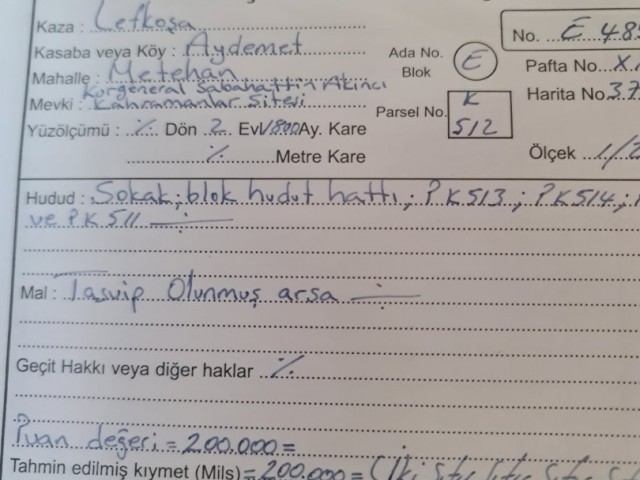 Kaza : Lefkoşa
No. E 485
Kasaba veya Köy : Aydemet
Ada No. Blok E
Pafta No. X
Mahalle : Metehan
Korgeneral Sabahattin Akıncı
Mevki : Kahramanlar Sitesi
Parsel No. K 512
Harita No. 37
Yüzölçümü : ·/. Dön 2 Ev 1800 Ay. Kare
·/. Metre Kare
Ölçek 1/2
Hudud : Sokak; blok hudut hattı; PK513; PK514;
ve PK511
Mal : Tasvip Olunmuş arsa
Geçit Hakkı veya diğer haklar ·/.
Puan değeri = 200.000 =
Tahmin edilmiş kıymet (Mils) = 200.000 = (İki